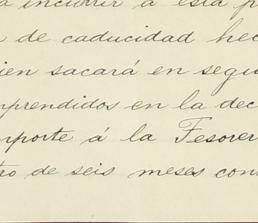 incurrir á esta p
de caducidad hec
ien sacará en segu
mprendidos en la dec
mporte á la Tesorer
tro de seis meses con